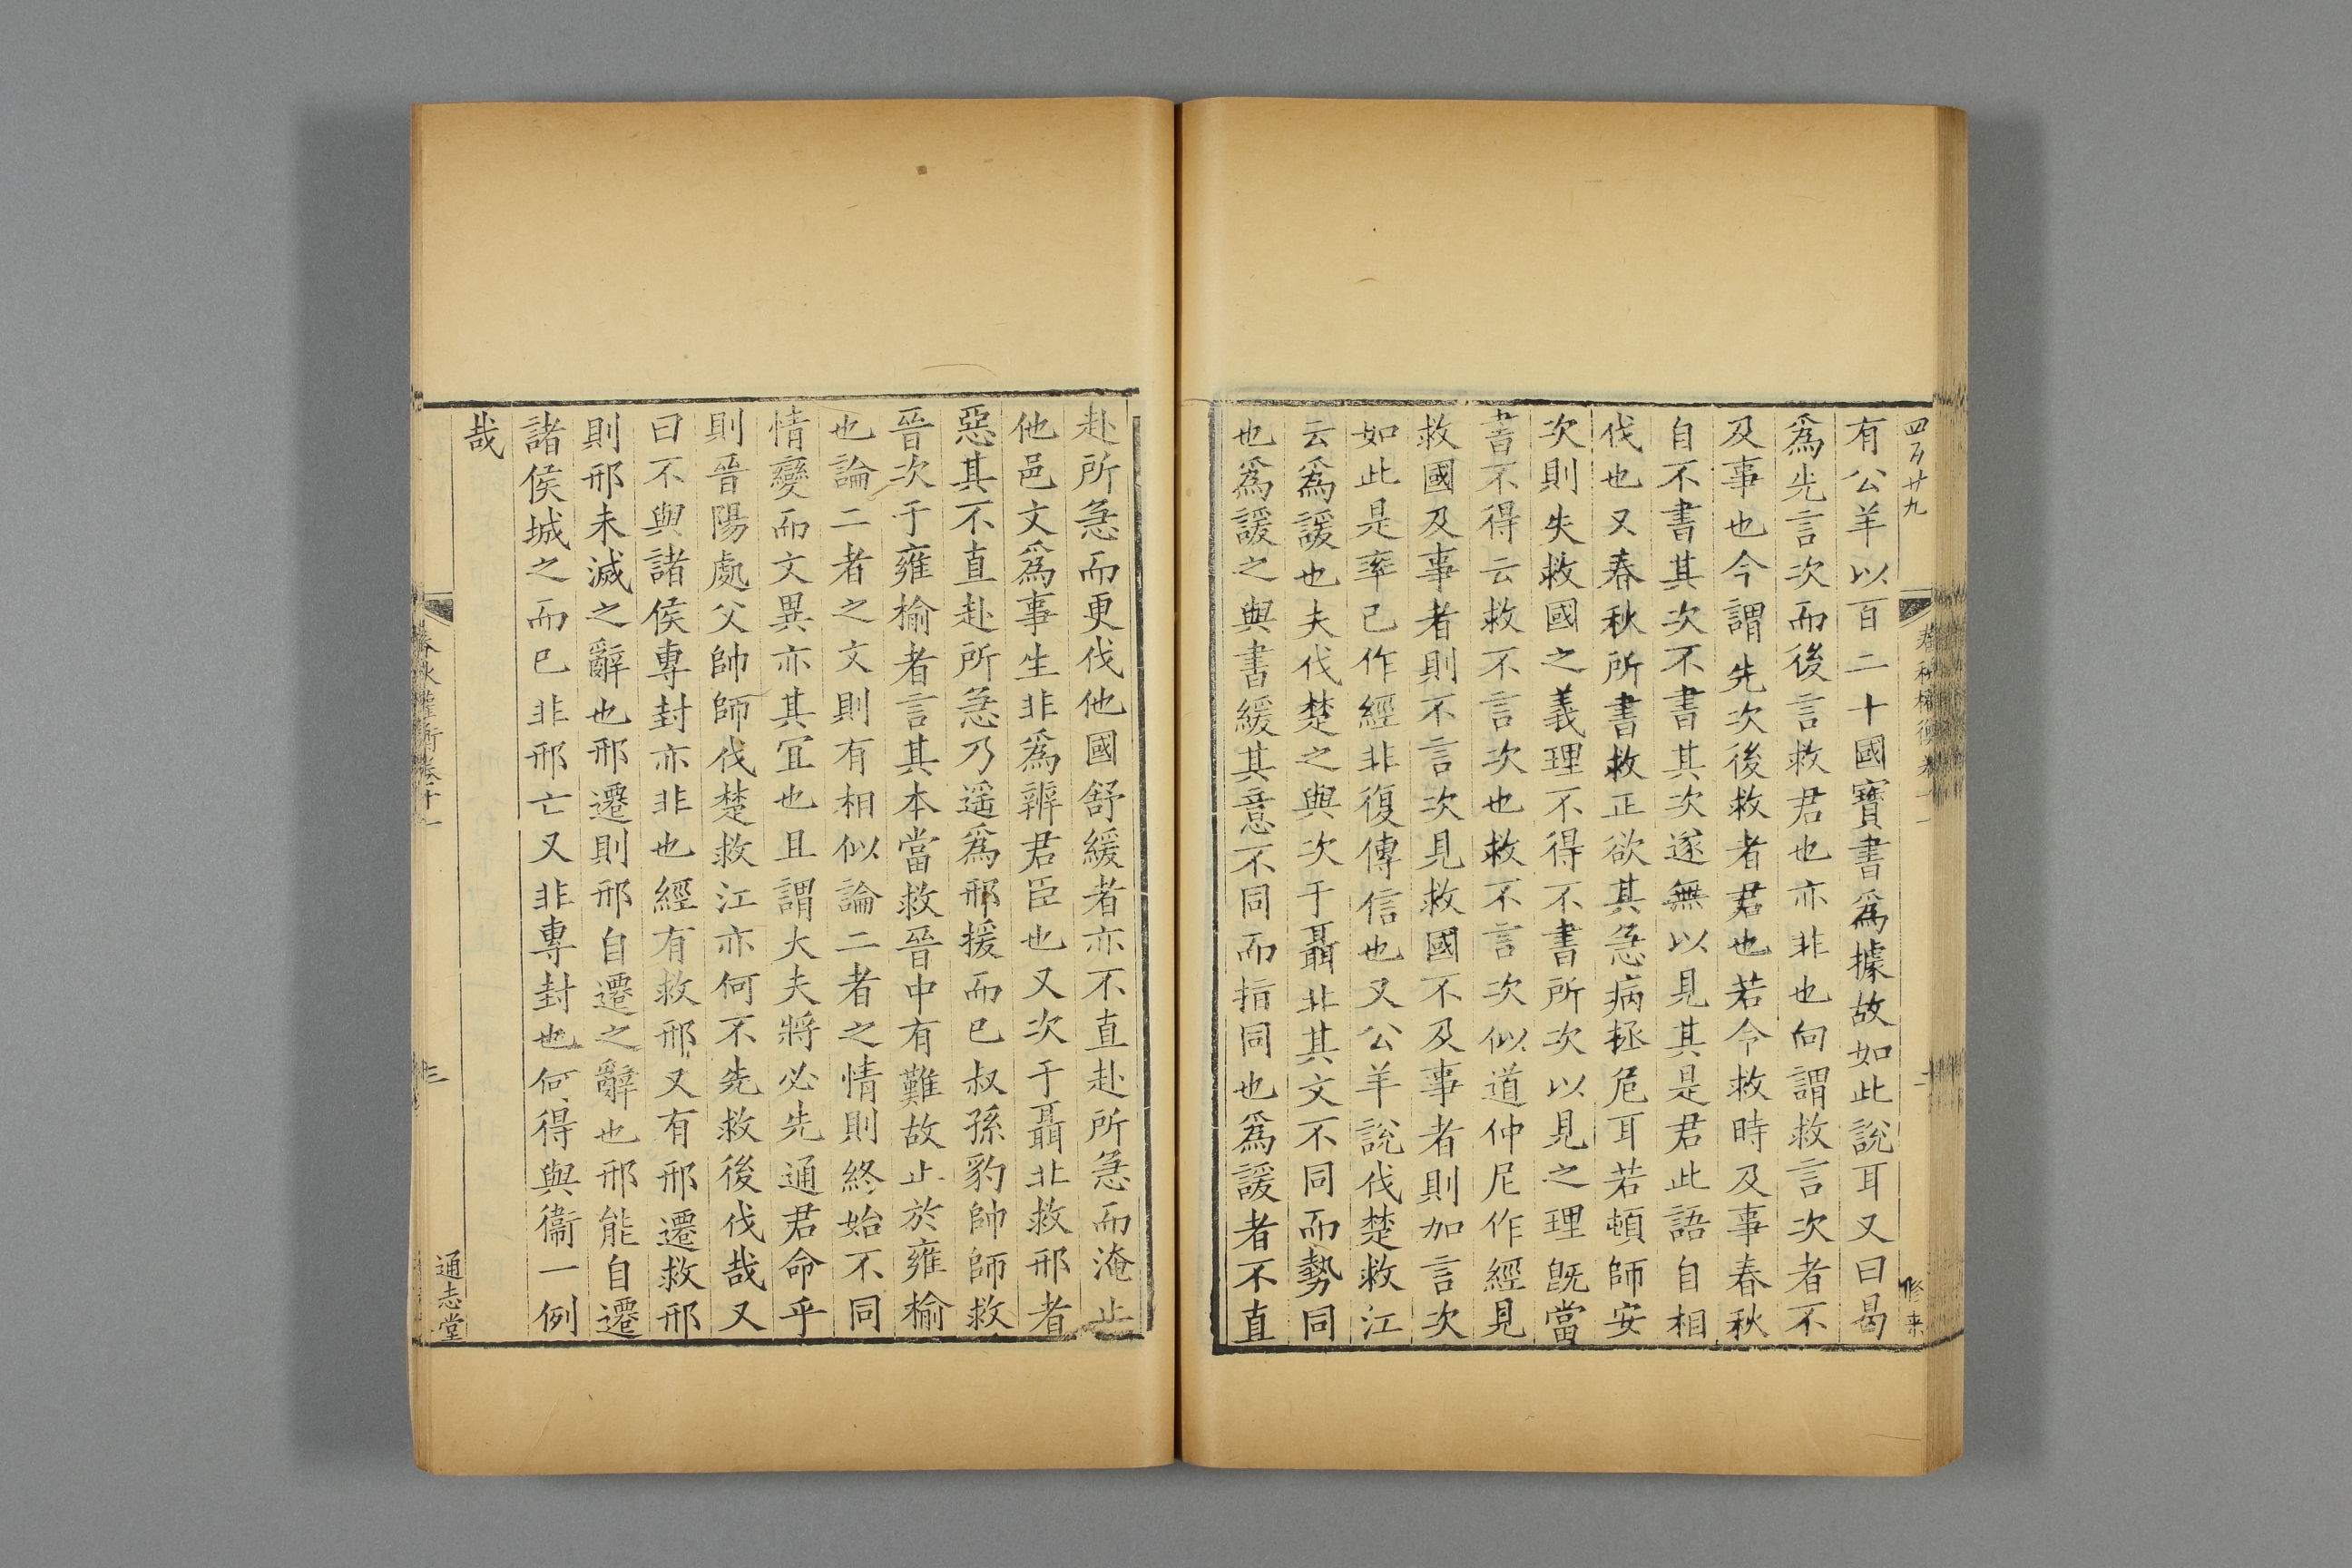 四百廿九
有公羊以百二十國寶書爲據故如此說耳又曰曷
爲先言次而後言救君也亦非也向謂救言次者不
及事也今謂先次後救者君也若今救時及事春秋
自不書其次不書其次遂無以見其是君此語自相
伐也又春秋所書救正欲其急病拯危耳若頓師安
次則失救國之義理不得不書所次以見之理旣當
書不得云救不言次也救不言次似道仲尼作經見
救國及事者則不言次見救國不及事者則加言次
如此是率已作經非復傳信也又公羊說伐楚救江
云爲諼也夫伐楚之與次于聶北其文不同而勢同
也爲諼之與書緩其意不同而指同也爲諼者不直
赴所急而更伐他國舒緩者亦不直赴所急而淹止
他邑文爲事生非爲辨君臣也又次于聶北救邢者
惡其不直赴所急乃遥爲邢援而已叔孫豹帥師救
晉次于雍榆者言其本當救晉中有難故止於雍榆
也論二者之文則有相似論二者之情則終始不同
情變而文異亦其宜也且謂大夫將必先通君命乎
則晉陽處父帥師伐楚救江亦何不先救後伐哉又
曰不與諸侯專封亦非也經有救邢又有邢遷救邢
則邢未滅之辭也邢遷則邢自遷之辭也邢能自遷
諸侯城之而已非邢亡又非專封也何得與衞一例
哉
春秋權衡卷十一
通志堂